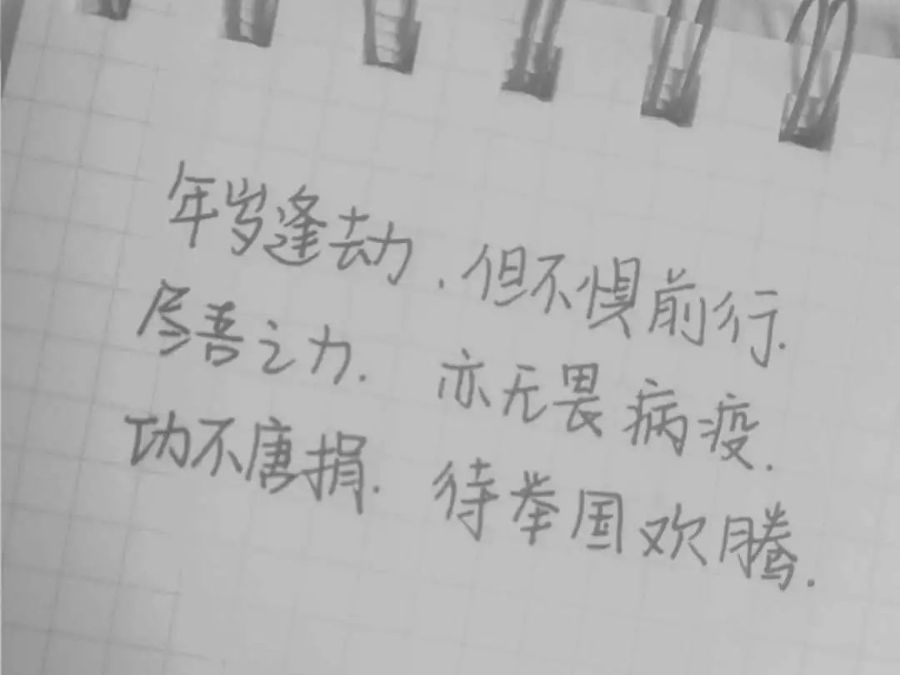 年岁逢劫.但不惧前行.
尽吾之力.亦无畏病疫.
功不唐捐.待举国欢腾.